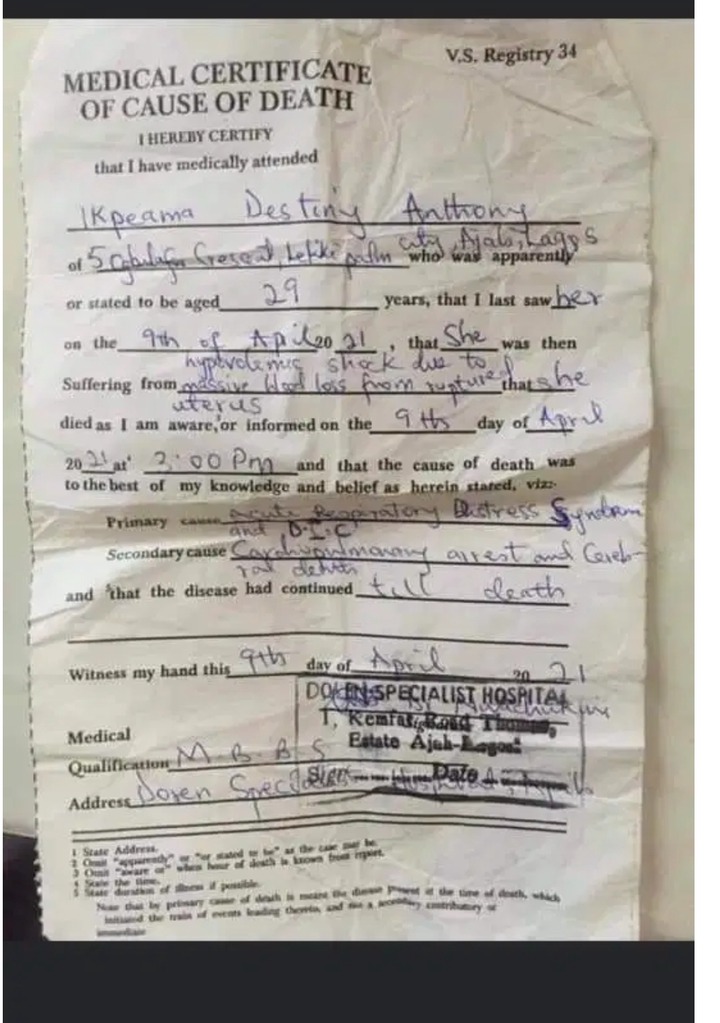 V.S. Registry 34
MEDICAL CERTIFICATE
OF CAUSE OF DEATH
I HEREBY CERTIFY
that I have medically attended
Ikpeama Destiny Anthony
of 5 Cresent, Lekki palm city, Ajah, Lagos who was apparently
or stated to be aged 29 years, that I last saw her
on the 9th of April 20 21, that She was then
hypovolemic shock due to
Suffering from massive blood loss from ruptured that she
uterus
died as I am aware, or informed on the 9th day of April
20 21 at 3:00 Pm and that the cause of death was
to the best of my knowledge and belief as herein stated, viz:-
Primary cause Acute Respiratory Distress Syndrome
and D.I.C
Secondary cause Cardiopulmonary arrest and Cereb-
and that the disease had continued till death
Witness my hand this 9th day of April 20 21
DOREN SPECIALIST HOSPITAL
1, Road Thomas,
Estate Ajah-Lagos
Sign Date
Medical
Qualification M.B.B.S
Address Doren Specialist Hospital, Ajah
1 State Address.
2 Omit "apparently" or "or stated to be" as the case may be.
3 Omit "aware or" when hour of death is known from report.
4 State the time.
5 State duration of illness if possible.
Note that by primary cause of death is meant the disease present at the time of death, which
initiated the train of events leading thereto, and not a secondary contributory or
immediate